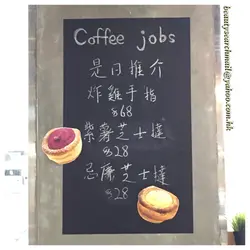 Coffee jobs
是日推介
炸雞手指
$68
紫薯芝士撻
$28
忌廉芝士撻
$28
beautysearchmail@yahoo.com.hk